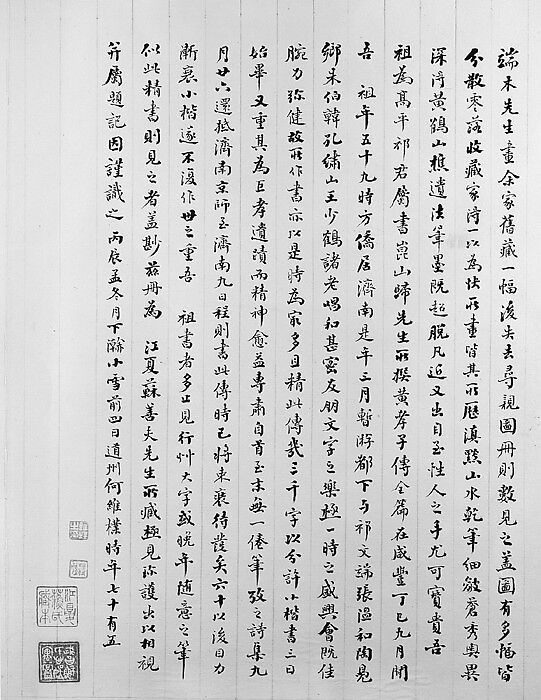 端木先生畫余家舊藏一幅後失去尋親圖冊則數見之蓋圖有多幅皆
分散零落收藏家得一以爲快所畫皆其所歷滇黔山水乾筆細皴蒼秀奧異
深得黃鶴山樵遺法筆墨既超脫凡近又出自至性人之手尤可寶貴吾
祖爲高平祁君屬書崑山歸先生所撰黃孝子傳全篇在咸豐丁巳九月間
吾 祖年五十九時方僑居濟南是年三月暫游都下與祁文端張溫和陶鳧
鄉朱伯韓孔繡山王少鶴諸老唱和甚密友朋文字之樂極一時之盛興會既佳
腕力彌健故所作書亦以是時爲最多且精此傳幾三千字以分許小楷書三日
始畢又重其爲巨孝遺蹟而精神愈益專肅自首至末無一倦筆攷之詩集九
月廿六還抵濟南京師至濟南九日程則書此傳時已將束裝待發矣六十以後目力
漸衰小楷遂不復作世之重吾 祖書者多止見行艸大字或晚年隨意之筆
似此精書則見之者蓋尠茲冊爲 江夏蘇善夫先生所藏極見珍護出以相視
幷屬題記因謹識之 丙辰孟冬月下澣小雪前四日道州何維樸時年七十有五